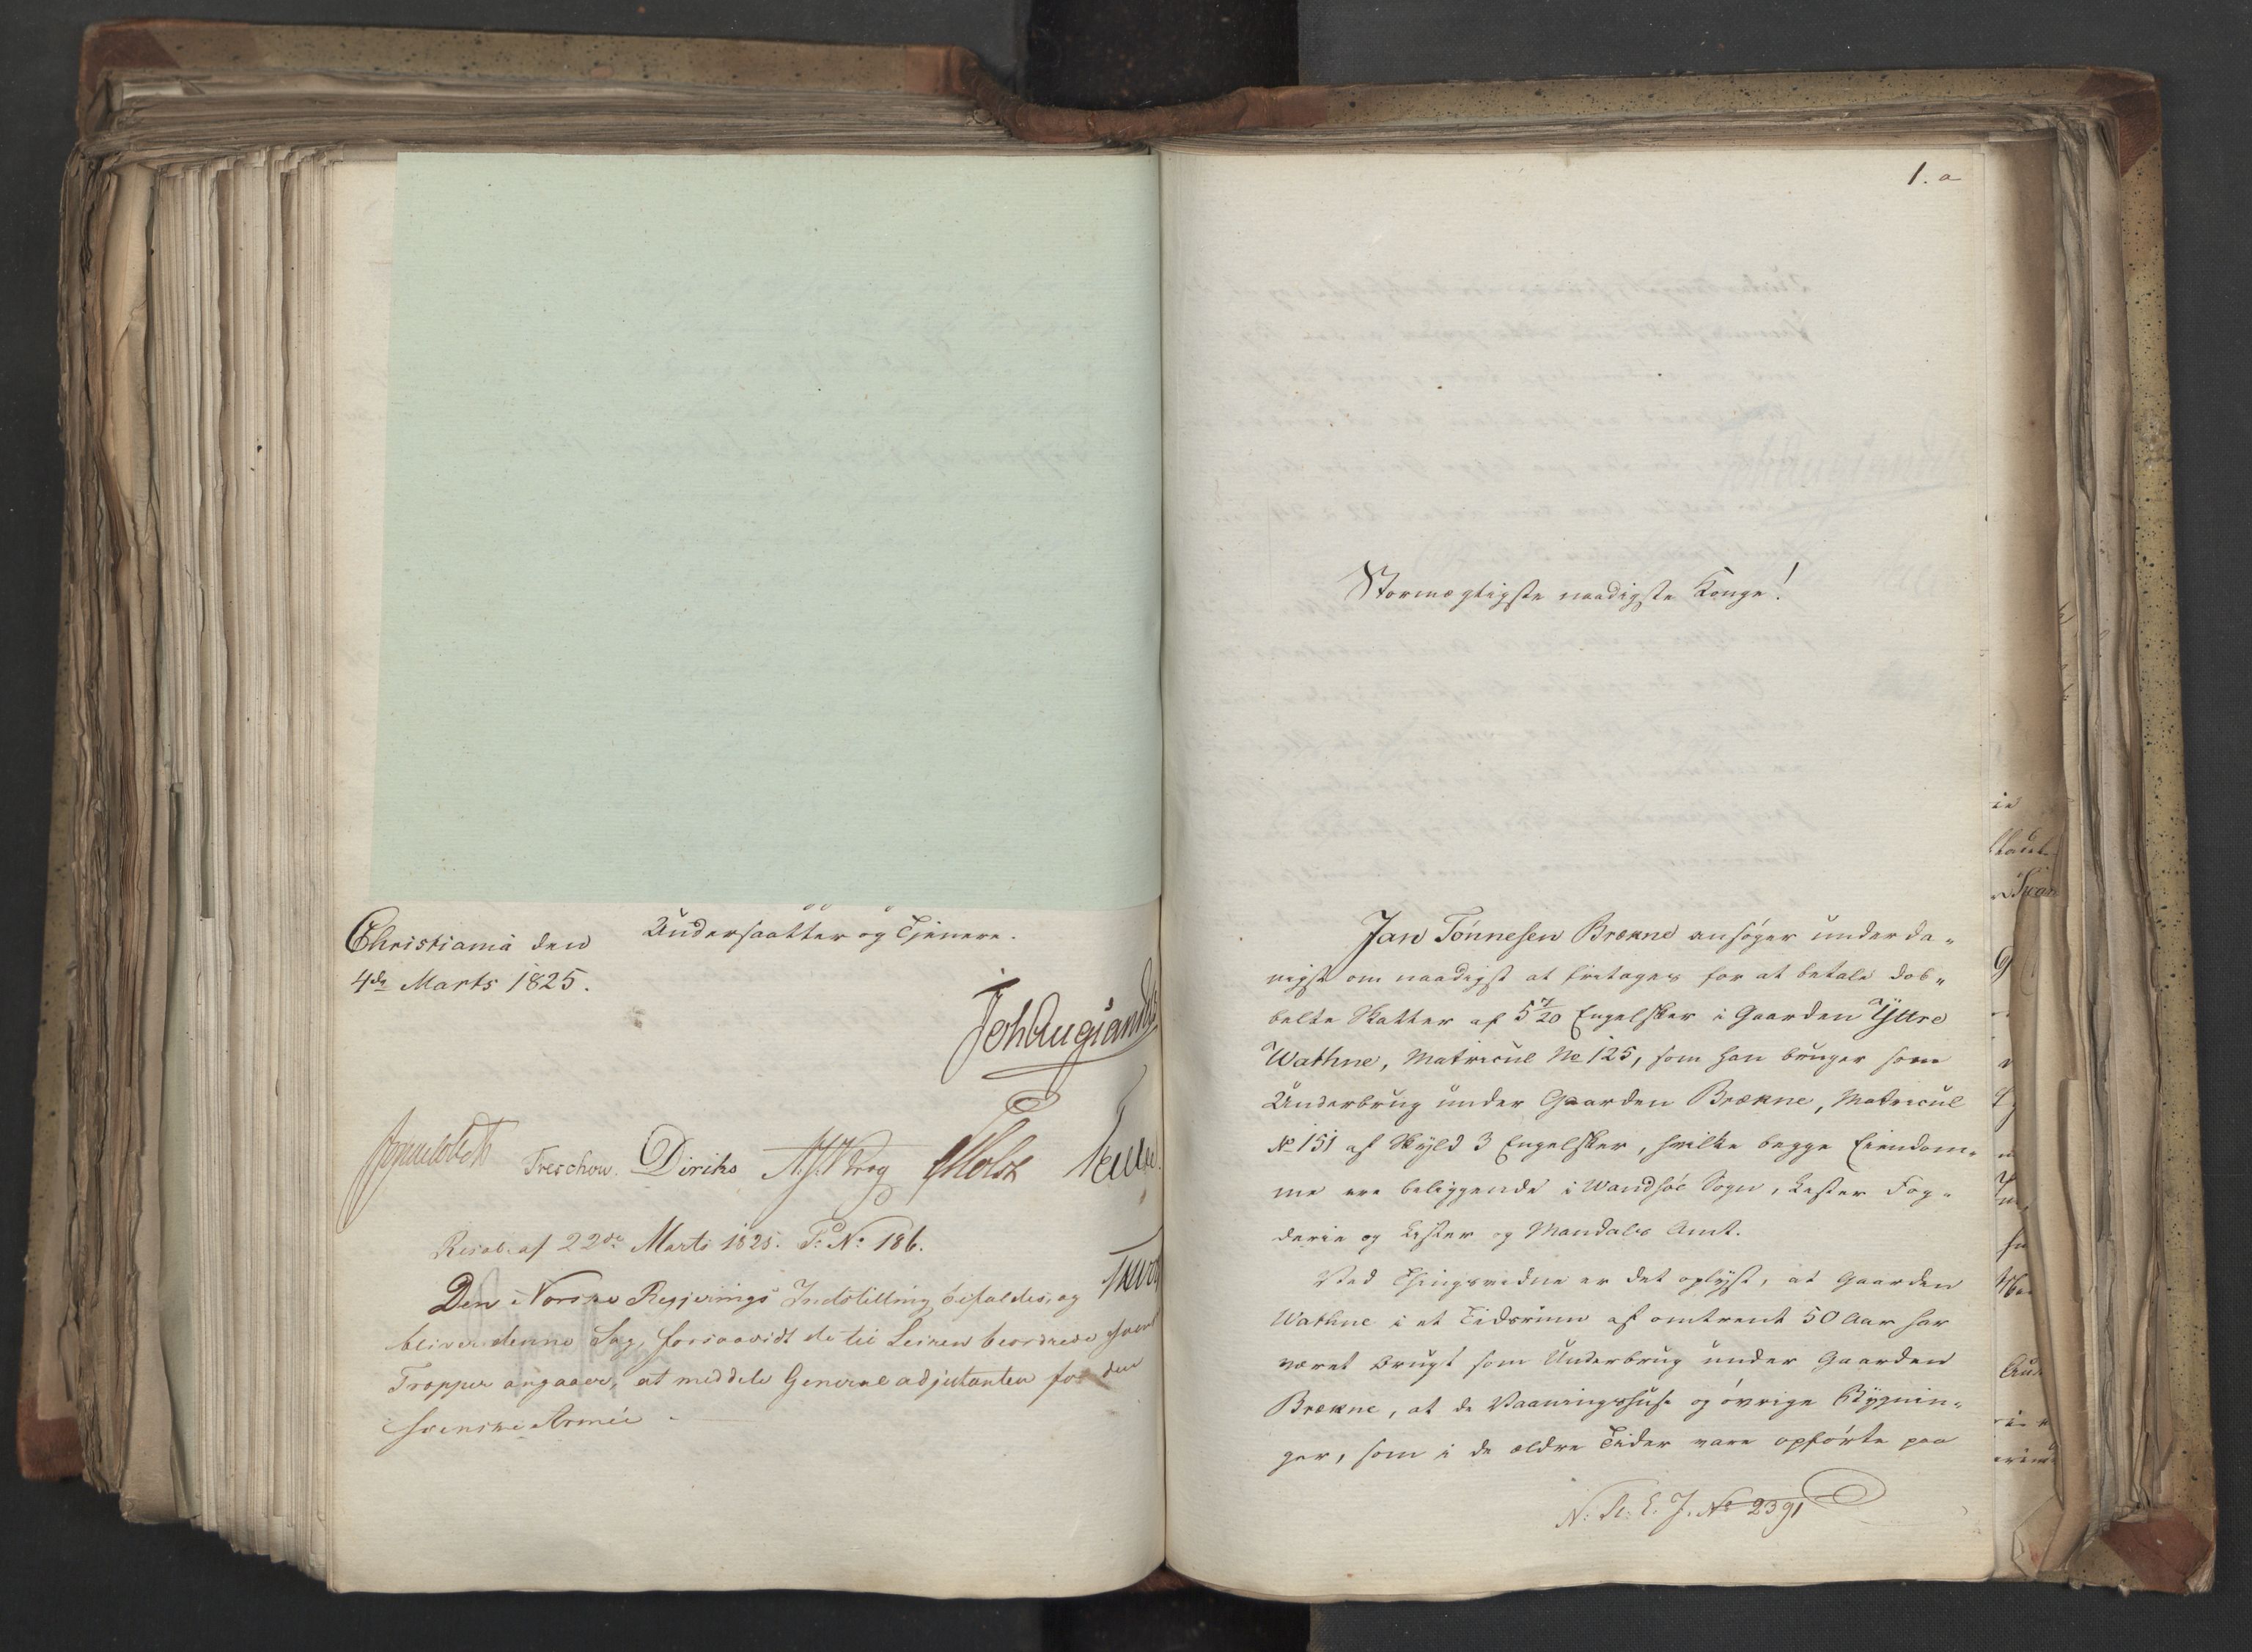 Undersaatter og Tjenere.
Christiania den
4de Marts 1825.
JohAugSandels
Treschow. Diriks Holst
Resol. af 22de Marts 1825. P: No 186.
Den Norske Regjerings Indstilling bifaldes, og
bliver denne Sag, forsaavidt de til Leiren beordrede svenske
Tropper angaaer, at meddele Generaladjutanten for den
svenske Armée.
1. a
Stormægtigste naadigste Konge!
Jan Tönnesen Brækne ansøger underda-
nigst om naadigst at fritages for at betale dob-
belte Skatter af 5 7/20 Engelsker i Gaarden Ÿttre
Wathne, Matricul No 125, som han bruger som
Underbrug under Gaarden Brækne, Matricul
No 151 af Skyld 3 Engelsker, hvilke begge Eiendom-
me ere beliggende i Wandsøe Sogn, Lister Fog-
derie og Lister og Mandals Amt.
Ved Thingsvidne er det oplyst, at Gaarden
Wathne i et Tidsrum af omtrent 50 Aar har
været brugt som Underbrug under Gaarden
Brækne, at de Vaaningshuse og øvrige Bygnin-
ger, som i de ældre Tider vare opførte paa
N: R: E. J. No 2391